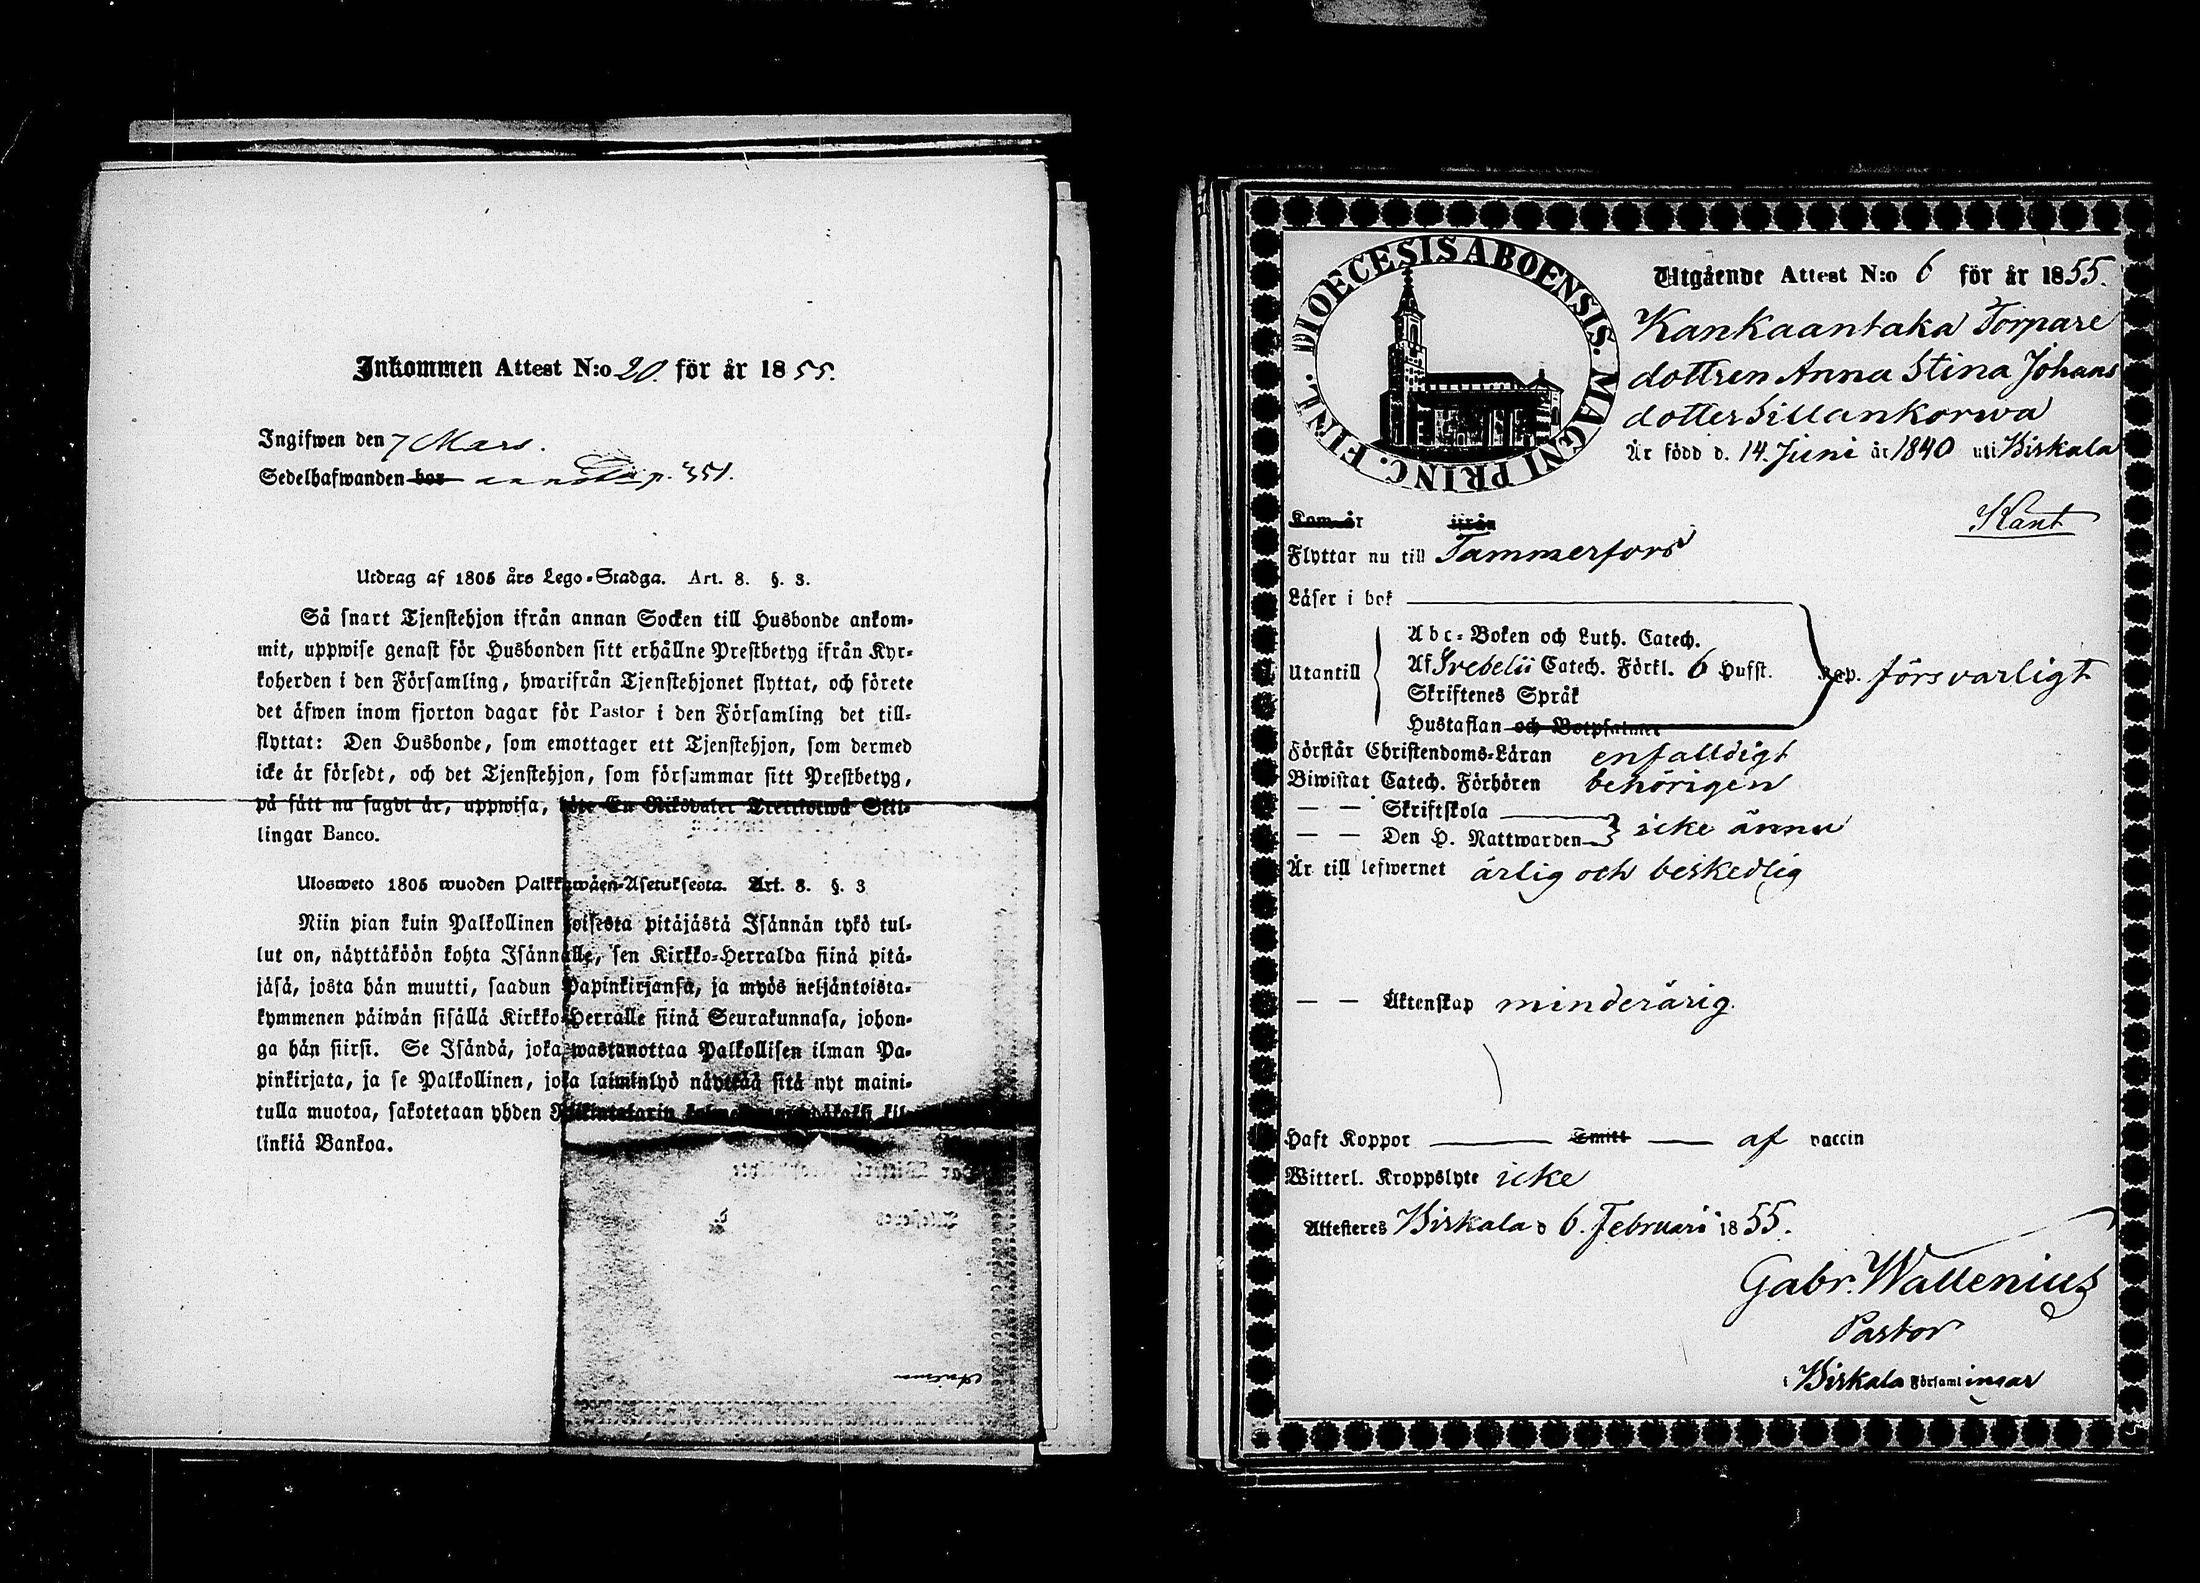 Inkommen Attest N:o 20. för år 1855.
Ingifwen den 7 Mars.
Sedelhafwanden bor p. 351.
Utdrag af 1805 års Lego-Stadga. Art. 8. §. 3.
Så snart Tjenstehjon ifrån annan Socken till Husbonde ankom-
mit, uppwise genast för Husbonden sitt erhållne Prestbetyg ifrån Kyr-
koherden i den Församling, hwarifrån Tjenstehjonet flyttat, och förete
det äfwen inom fjorton dagar för Pastor i den Församling det till-
flyttat: Den Husbonde, som emottager ett Tjenstehjon, som dermed
icke är försedt, och det Tjenstehjon, som försummar sitt Prestbetyg,
på sätt nu sagdt är, uppwisa, böte En Riksdaler Trettiotwå Skil-
lingar Banco.
Ulosweto 1805 wuoden Palkkawäen-Asetuksesta. Art. 8. §. 3
Niin pian kuin Palkollinen toisesta pitäjästä Isännän tykö tul-
lut on, näyttäköön kohta Isännälle, sen Kirkko-Herralda siinä pitä-
jäsä, josta hän muutti, saadun Papinkirjansa, ja myös neljäntoista-
kymmenen päiwän sisällä Kirkko-Herralle siinä Seurakunnasa, johon-
ga hän siirsi. Se Isändä, joka wastanottaa Palkollisen ilman Pa-
pinkirjata, ja se Palkollinen, joka laiminlyö näyttää sitä nyt maini-
tulla muotoa, sakotetaan yhden Riikintalarin kil-
linkiä Bankoa.
DIOECESIS ABOENSIS. MAGNI PRINC. FINL.
Utgående Attest N:o 6 för år 1855.
Kankaantaka Torpare
dottren Anna Stina Johans
dotter Sillankorwa
Är född d. 14. Juni år 1840 uti Birkala
Kom år ifrån
Kant
Flyttar nu till Tammerfors
Läser i bok
Utantill
Abc-Boken och Luth. Catech.
Af Svebelii Catech. Förkl. 6 Hufst.
Skriftenes Språk
Hustaflan och Botpsalmer
försvarligt
Förstår Christendoms-Läran enfalldigt
Biwistat Catech. Förhören behörigen
— — Skriftskola
— — Den H. Nattwarden icke ännu
Är till lefwernet ärlig och beskedlig
— — Äktenskap minderårig.
Haft Koppor Smitt af vaccin
Witterl. Kroppslyte icke
Attesteres Birkala d 6. Februari 1855.
Gabr. Wallenius
Pastor
i Birkala Församlingar